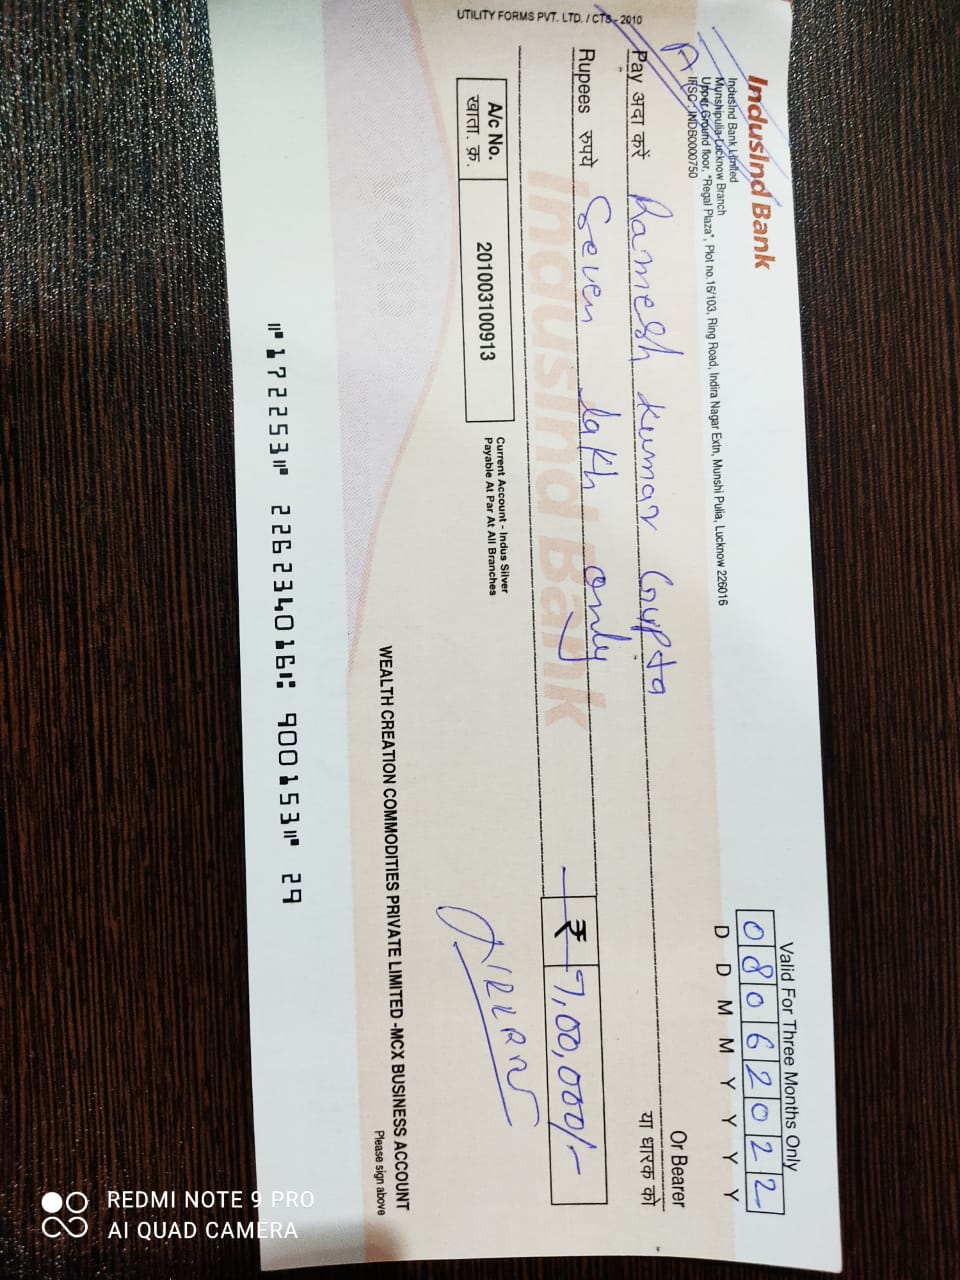 IndusInd Bank
IndusInd Bank Limited
Munshipulia-Lucknow Branch
Upper Ground floor, "Regal Plaza", Plot no.16/103, Ring Road, Indira Nagar Extn, Munshi Pulia, Lucknow 226016
IFSC : INDB0000750
Valid For Three Months Only
08062022
D D M M Y Y Y Y
Pay अदा करें Ramesh Kumar Gupta
Or Bearer
या धारक को
Rupees रुपये Seven lakh only
₹ 7,00,000/-
IndusInd Bank
A/c No.
खाता. क्र.
201003100913
Current Account - Indus Silver
Payable At Par At All Branches
VOID
WEALTH CREATION COMMODITIES PRIVATE LIMITED -MCX BUSINESS ACCOUNT
Please sign above
⑈172253⑈ 226234016⑆ 900153⑈ 29
UTILITY FORMS PVT. LTD. / CTS - 2010
REDMI NOTE 9 PRO
AI QUAD CAMERA